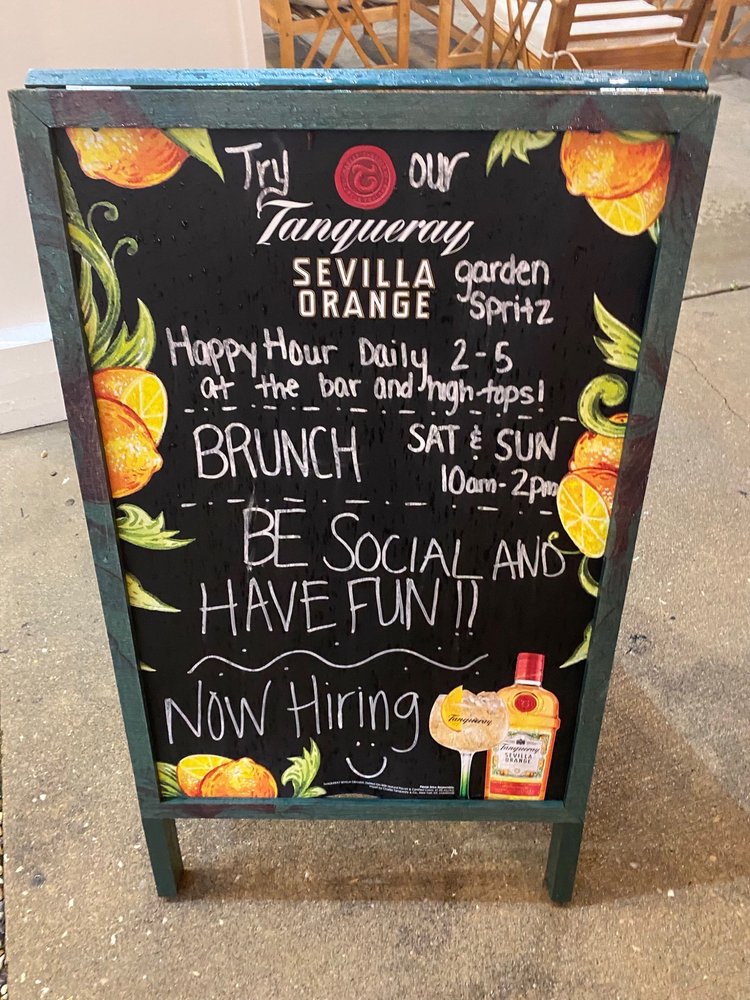 Try our
Tanqueray
SEVILLA garden
ORANGE Spritz
Happy Hour Daily 2-5
at the bar and high-tops!
BRUNCH SAT & SUN
10am-2pm
BE SOCIAL AND
HAVE FUN!!
NOW Hiring
Tanqueray
Tanqueray
SEVILLA
ORANGE